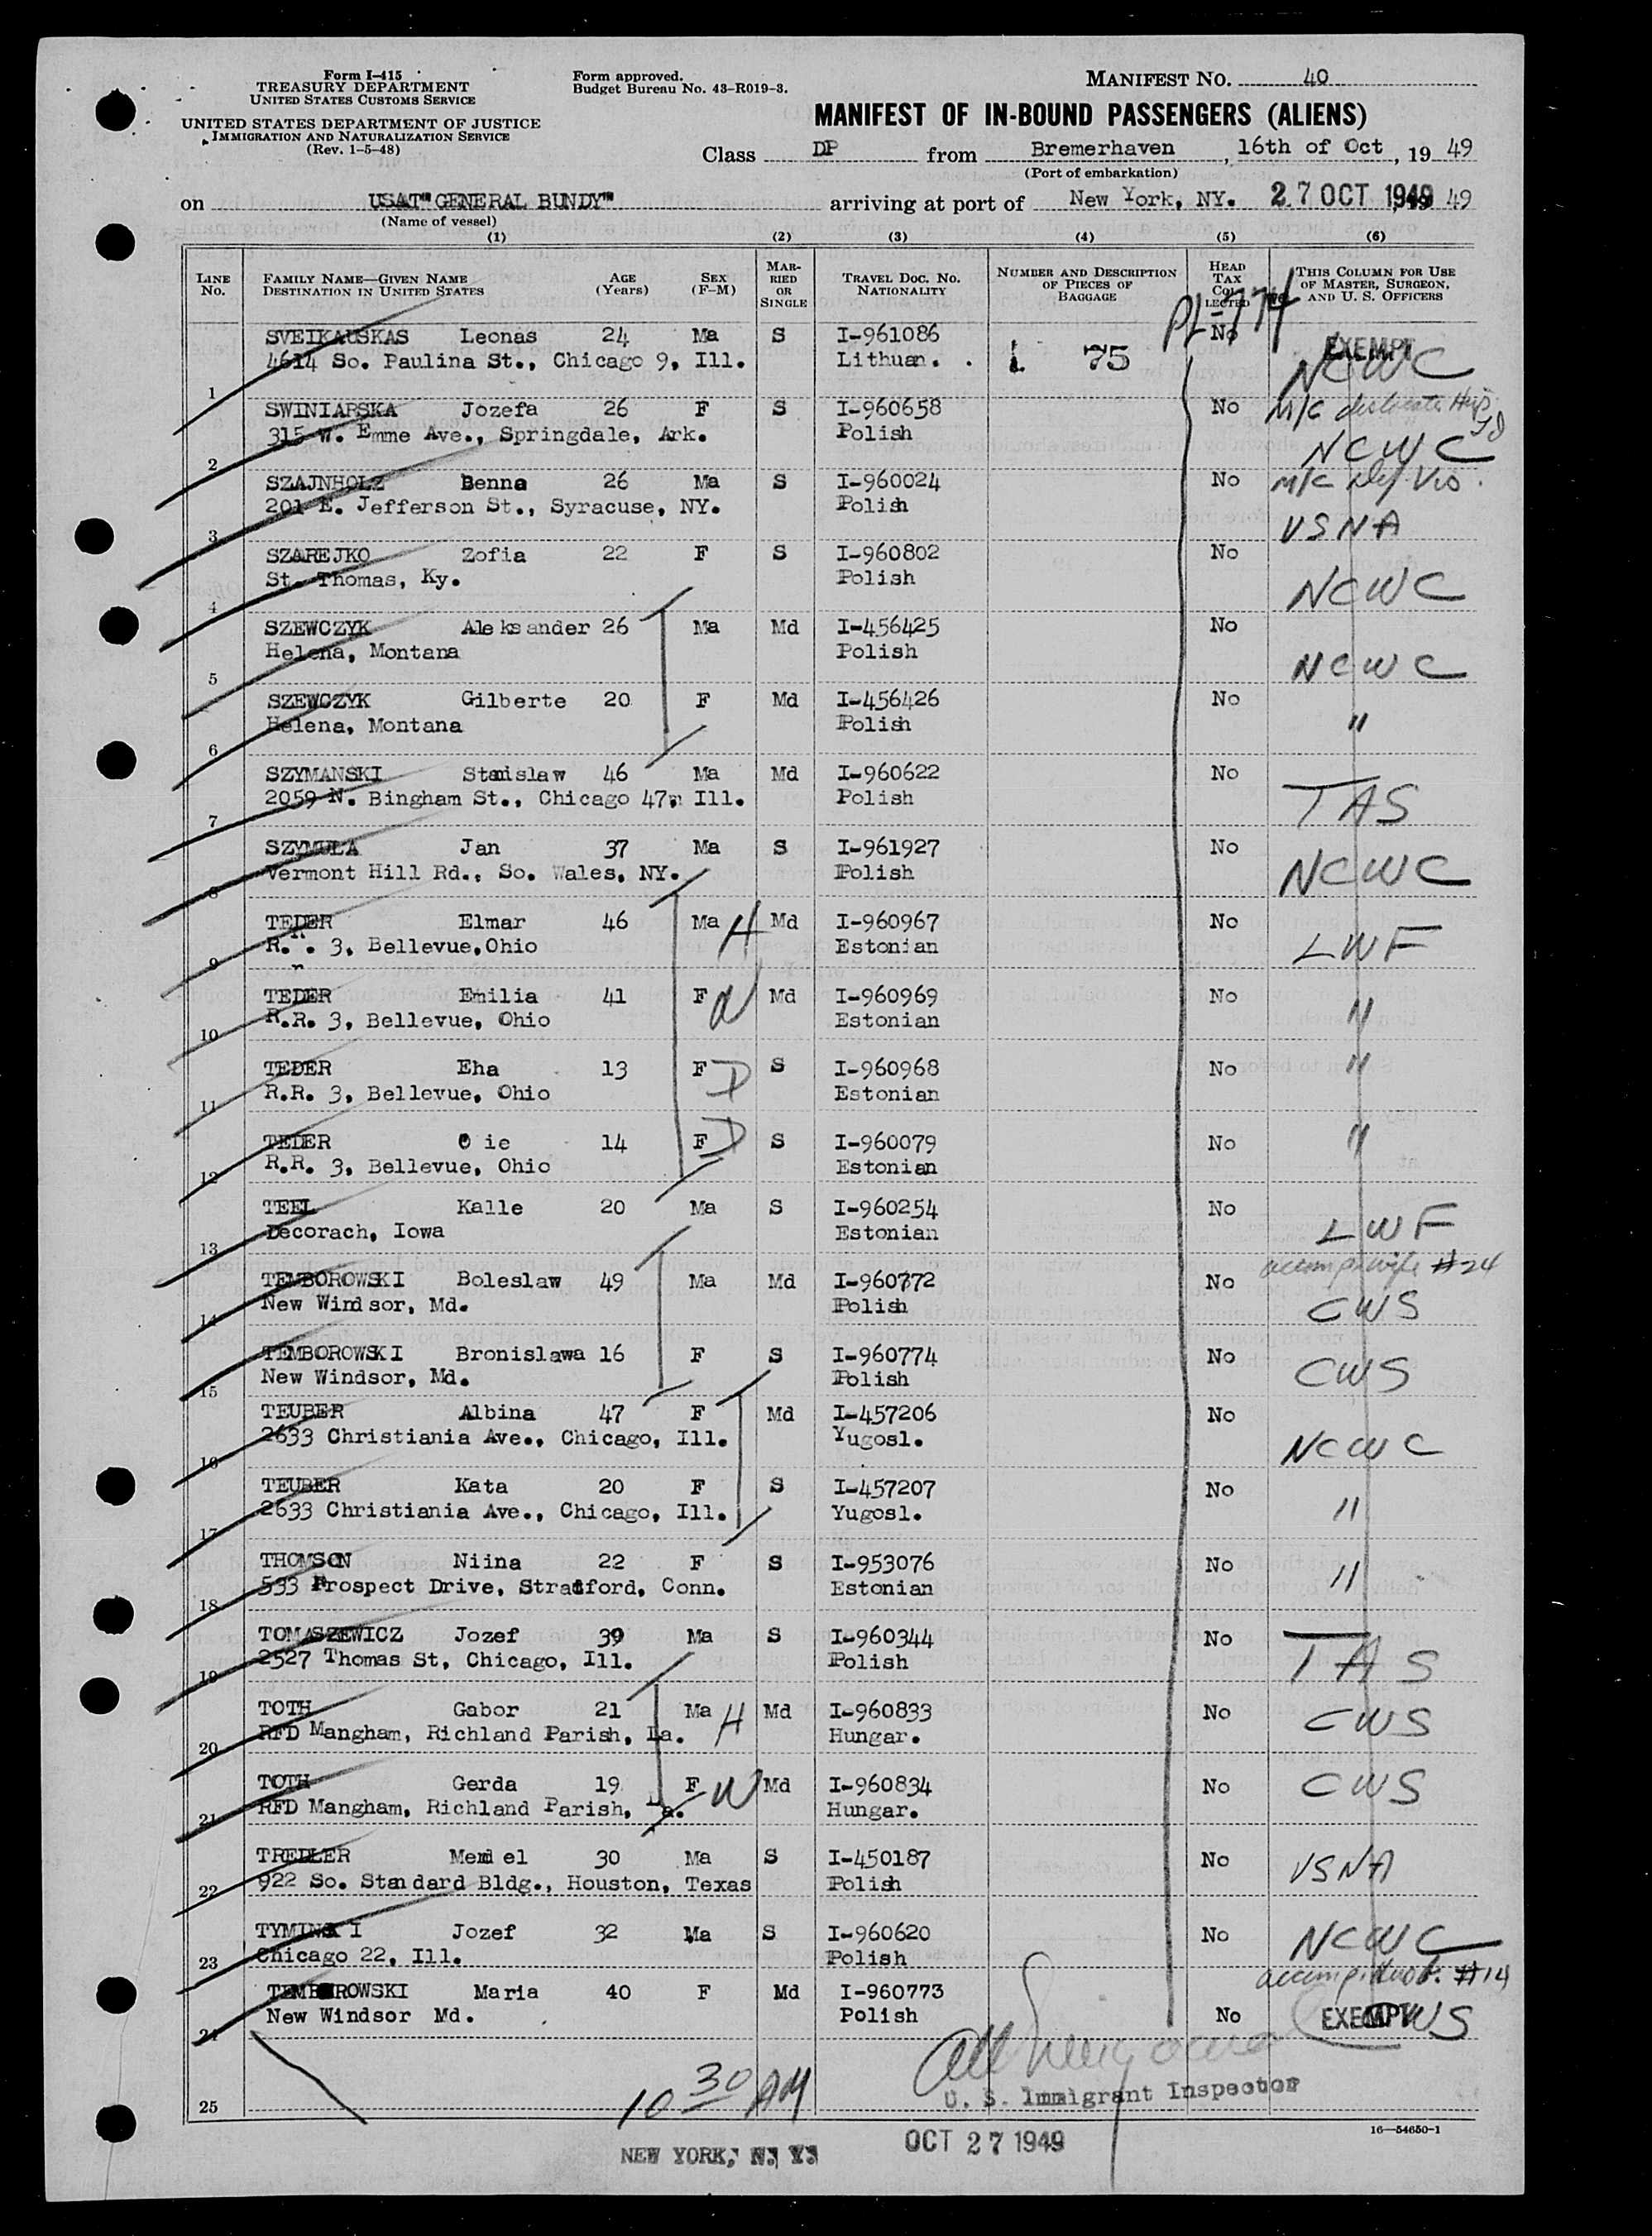 Form I-415
TREASURY DEPARTMENT
UNITED STATES CUSTOMS SERVICE
UNITED STATES DEPARTMENT OF JUSTICE
IMMIGRATION AND NATURALIZATION SERVICE
(Rev. 1-5-48)
Form approved.
Budget Bureau No. 43-R019-3.
MANIFEST NO. 40
MANIFEST OF IN-BOUND PASSENGERS (ALIENS)
Class DP from Bremerhaven, 16th of Oct, 19 49
(Port of embarkation)
on USAT"GENERAL BUNDY" arriving at port of New York, NY. 27 OCT 1949 49
(Name of vessel)
(1) (2) (3) (4) (5) (6)
LINE No.
FAMILY NAME—GIVEN NAME
DESTINATION IN UNITED STATES
AGE (Years)
SEX (F-M)
MARRIED OR SINGLE
TRAVEL DOC. NO.
NATIONALITY
NUMBER AND DESCRIPTION OF PIECES OF BAGGAGE
HEAD TAX COLLECTED
THIS COLUMN FOR USE OF MASTER, SURGEON, AND U. S. OFFICERS
PL-774
SVEIKAUSKAS Leonas 24 Ma S I-961086 No EXEMPT
4614 So. Paulina St., Chicago 9, Ill. Lithuan. 75 NCWC
1
SWINIARSKA Jozefa 26 F S I-960658 No M/C
315 W. Emme Ave., Springdale, Ark. Polish NCWC
2
SZAJNHOLZ Benna 26 Ma S I-960024 No M/C Def Vis.
201 E. Jefferson St., Syracuse, NY. Polish USNA
3
SZAREJKO Zofia 22 F S I-960802 No
St. Thomas, Ky. Polish NCWC
4
SZEWCZYK Aleksander 26 Ma Md I-456425 No
Helena, Montana Polish NCWC
5
SZEWCZYK Gilberte 20 F Md I-456426 No
Helena, Montana Polish "
6
SZYMANSKI Stanislaw 46 Ma Md I-960622 No
2059 N. Bingham St., Chicago 47, Ill. Polish TAS
7
SZYMULA Jan 37 Ma S I-961927 No
Vermont Hill Rd., So. Wales, NY. Polish NCWC
8
TEDER Elmar 46 Ma H Md I-960967 No
R.R. 3, Bellevue, Ohio Estonian LWF
9
TEDER Emilia 41 F W Md I-960969 No
R.R. 3, Bellevue, Ohio Estonian "
10
TEDER Eha 13 F D S I-960968 No "
R.R. 3, Bellevue, Ohio Estonian
11
TEDER 14 F D S I-960079 No "
R.R. 3, Bellevue, Ohio Estonian
12
TEEL Kalle 20 Ma S I-960254 No
Decorach, Iowa Estonian LWF
13
accomp. wife #24
TEMBOROWSKI Boleslaw 49 Ma Md I-960772 No
New Windsor, Md. Polish CWS
14
TEMBOROWSKI Bronislawa 16 F S I-960774 No
New Windsor, Md. Polish CWS
15
TEUBER Albina 47 F Md I-457206 No
2633 Christiania Ave., Chicago, Ill. Yugosl. NCWC
16
TEUBER Kata 20 F S I-457207 No
2633 Christiania Ave., Chicago, Ill. Yugosl. "
17
THOMSON Niina 22 F S I-953076 No
533 Prospect Drive, Stratford, Conn. Estonian "
18
TOMASZEWICZ Jozef 39 Ma S I-960344 No
2527 Thomas St, Chicago, Ill. Polish TAS
19
TOTH Gabor 21 Ma H Md I-960833 No
RFD Mangham, Richland Parish, La. Hungar. CWS
20
TOTH Gerda 19 F W Md I-960834 No CWS
RFD Mangham, Richland Parish, La. Hungar.
21
TREDLER Mendel 30 Ma S I-450187 No
922 So. Standard Bldg., Houston, Texas Polish USNA
22
TYMINSKI Jozef 32 Ma S I-960620 No
Chicago 22, Ill. Polish NCWC
23
accomp. #14
TEMBOROWSKI Maria 40 F Md I-960773
New Windsor Md. Polish No EXEMPT CWS
24
10 30 AM
U. S. Immigrant Inspector
25
16—54650-1
NEW YORK, N. Y. OCT 27 1949